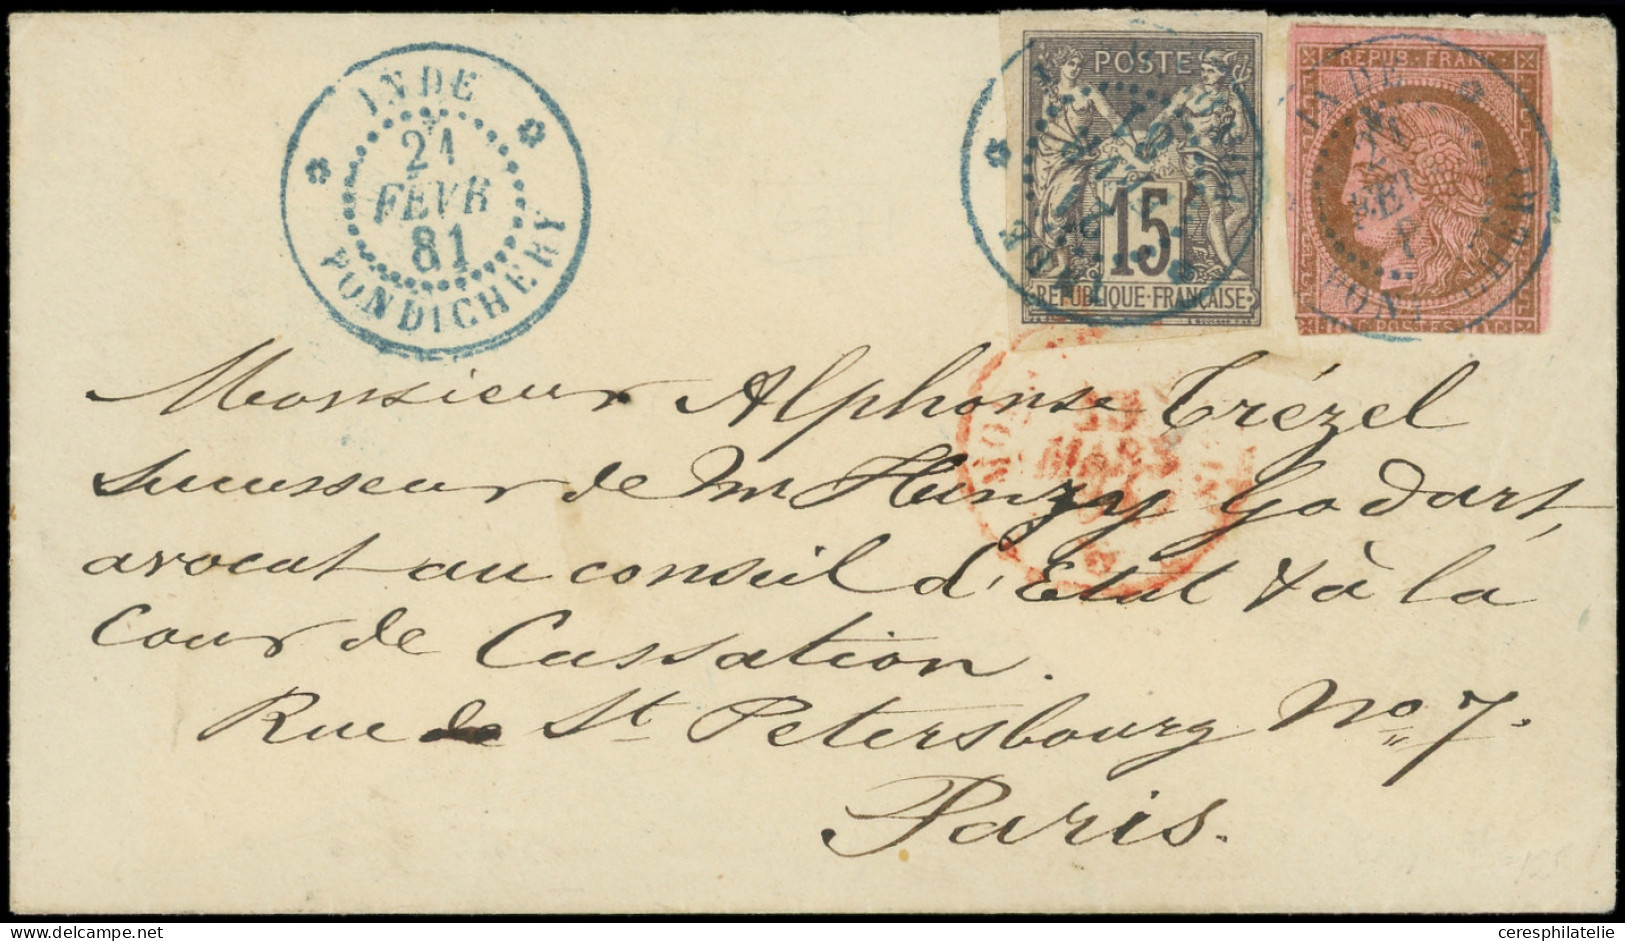 INDE
21
FEVR
81
PONDICHERY
POSTE
15
REPUBLIQUE·FRANÇAISE
INDE
REPUB·FRANC
POSTES
MARS
Monsieur Alphonse Trézel
successeur de Mr Henzy Godart,
avocat au conseil d'Etat & à la
Cour de Cassation.
Rue de St Petersbourg No 7.
Paris.
ceresphilatelie